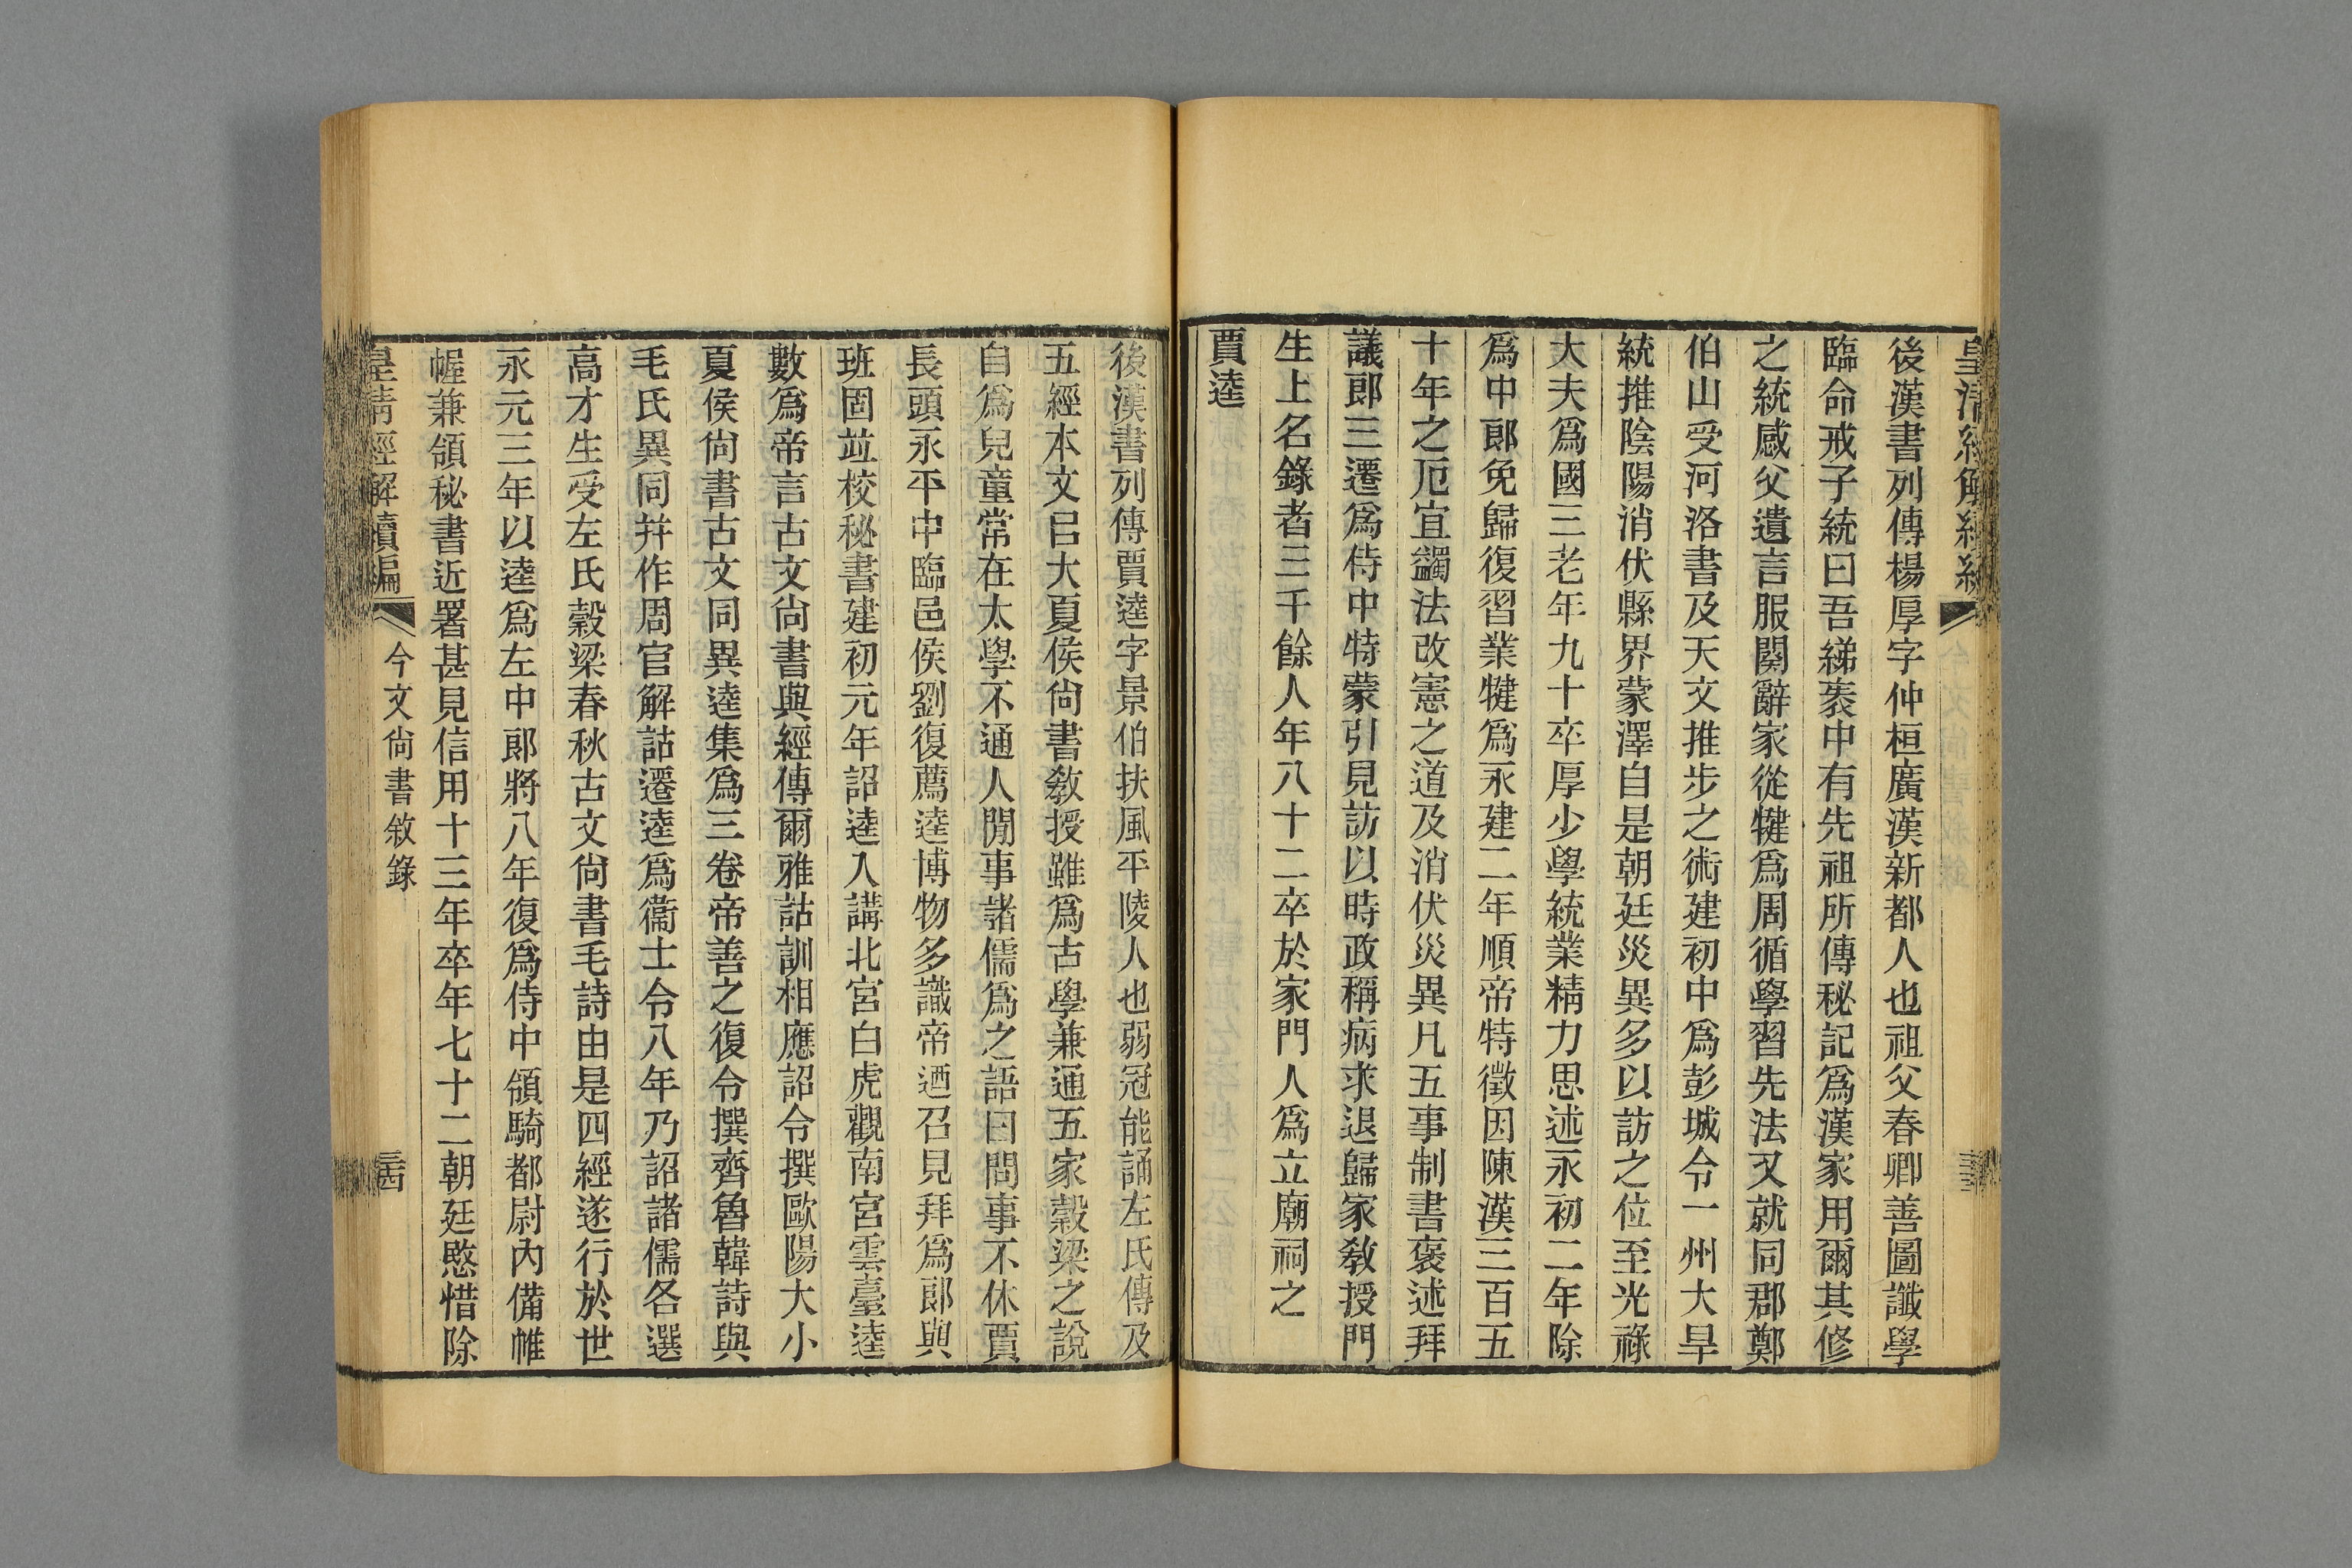 皇清經解續編
後漢書列傳楊厚字仲桓廣漢新都人也祖父春卿善圖讖學
臨命戒子統曰吾綈袠中有先祖所傳秘記爲漢家用爾其修
之統感父遺言服闋辭家從犍爲周循學習先法又就同郡鄭
伯山受河洛書及天文推步之術建初中爲彭城令一州大旱
統推陰陽消伏縣界蒙澤自是朝廷災異多以訪之位至光祿
大夫爲國三老年九十卒厚少學統業精力思述永初二年除
爲中郎免歸復習業犍爲永建二年順帝特徵因陳漢三百五
十年之厄宜蠲法改憲之道及消伏災異凡五事制書褒述拜
議郎三遷爲侍中特蒙引見訪以時政稱病求退歸家敎授門
生上名錄者三千餘人年八十二卒於家門人爲立廟祠之
賈逵
後漢書列傳賈逵字景伯扶風平陵人也弱冠能誦左氏傳及
五經本文㠯大夏侯尙書敎授雖爲古學兼通五家穀梁之說
自爲兒童常在太學不通人閒事諸儒爲之語曰問事不休賈
長頭永平中臨邑侯劉復薦逵博物多識帝迺召見拜爲郎與
班固竝校秘書建初元年詔逵入講北宮白虎觀南宮雲臺逵
數爲帝言古文尙書與經傳爾雅詁訓相應詔令撰歐陽大小
夏侯尙書古文同異逵集爲三卷帝善之復令撰齊魯韓詩與
毛氏異同幷作周官解詁遷逵爲衞士令八年乃詔諸儒各選
高才生受左氏穀梁春秋古文尙書毛詩由是四經遂行於世
永元三年以逵爲左中郎將八年復爲侍中領騎都尉內備帷
幄兼領秘書近署甚見信用十三年卒年七十二朝廷愍惜除
皇清經解續編 今文尙書敘錄 三四